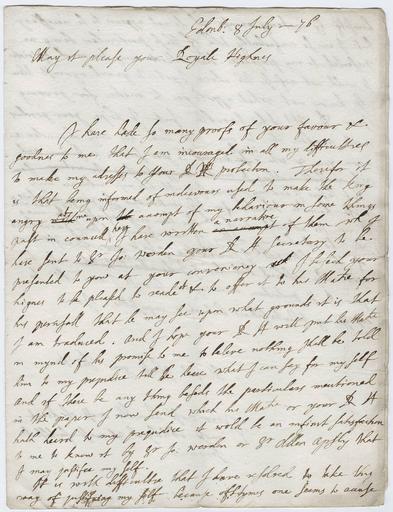 Edenb: 8 July — 76
May it please your Royale Highnes
I have hade so many proofs of your favour &
goodnes to me. that I am incouraged in all my difficulties
to make my adress to your R H protection. Therfor it
is that being informed of indeavours used to make the King
angry upon account of my behaviour in some things
past in councill here I have written a narrative of them wch I
have sent to Sr Jo. Worden your R H Secretary to be
presented to you at your conveniency I beseech your
highnes to be pleased to reade it & to offer it to his Matie for
his perusall that he may see upon what grounds it is that
I am traduced. And I hope your R H will put his Matie
in mynd of his promise to me to beleive nothing shall be told
him to my prejudice till he heare what I can say for my self
and if there be any thing besyds the particulars mentioned
in the paper I now send which his Matie or your R H
hath heard to my prejudice it wold be an infinit satisfaction
to me to know it by Sr Jo. Worden or Sr Allen Apsly that
I may justifie my self
It is with difficultie that I have resolved to take this
way of justifying my self because oftymes one seems to accuse